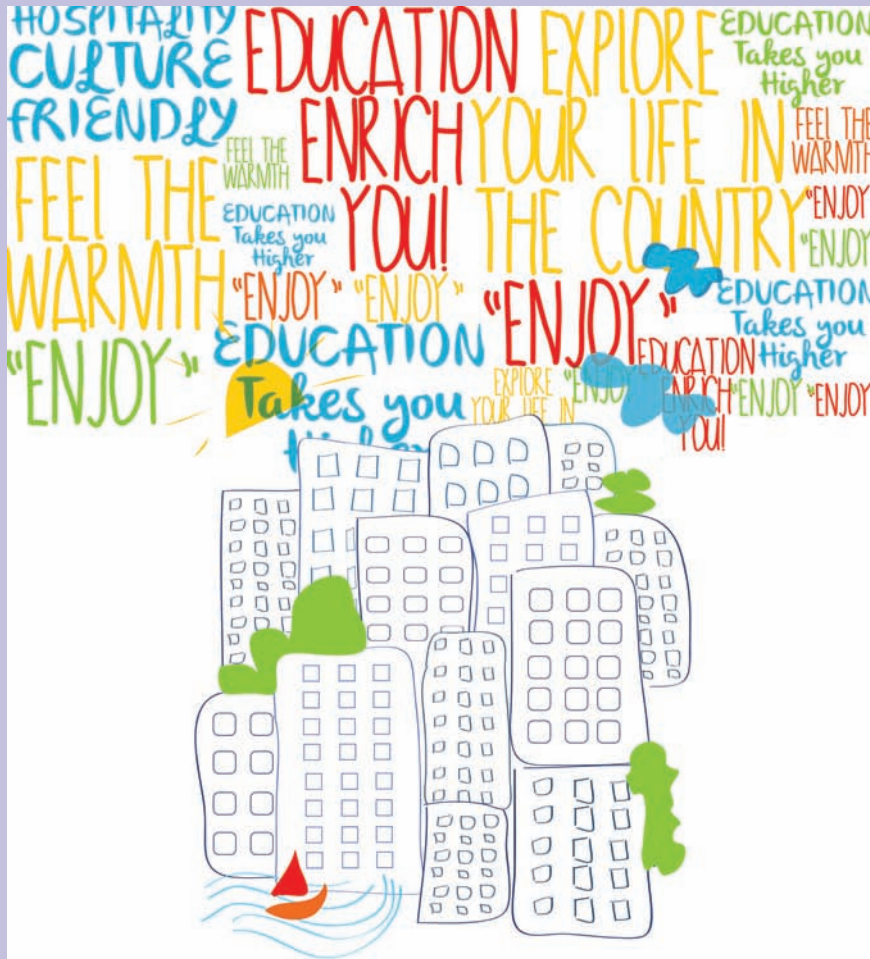 HOSPITALITY
CULTURE
FRIENDLY
EDUCATION
ENRICH
YOU!
EXPLORE
YOUR LIFE IN
THE COUNTRY
EDUCATION
Takes you
Higher
FEEL THE
WARMTH
FEEL THE
WARMTH
FEEL THE
WARMTH
EDUCATION
Takes you
Higher
"ENJOY"
"ENJOY"
"ENJOY"
"ENJOY"
"ENJOY
"ENJOY
EDUCATION
Takes you
Higher
"ENJOY"
EDUCATION
Takes you
Higher
EXPLORE
YOUR LIFE IN
"ENJOY
EDUCATION
ENRICH
YOU!
"ENJOY"
"ENJOY